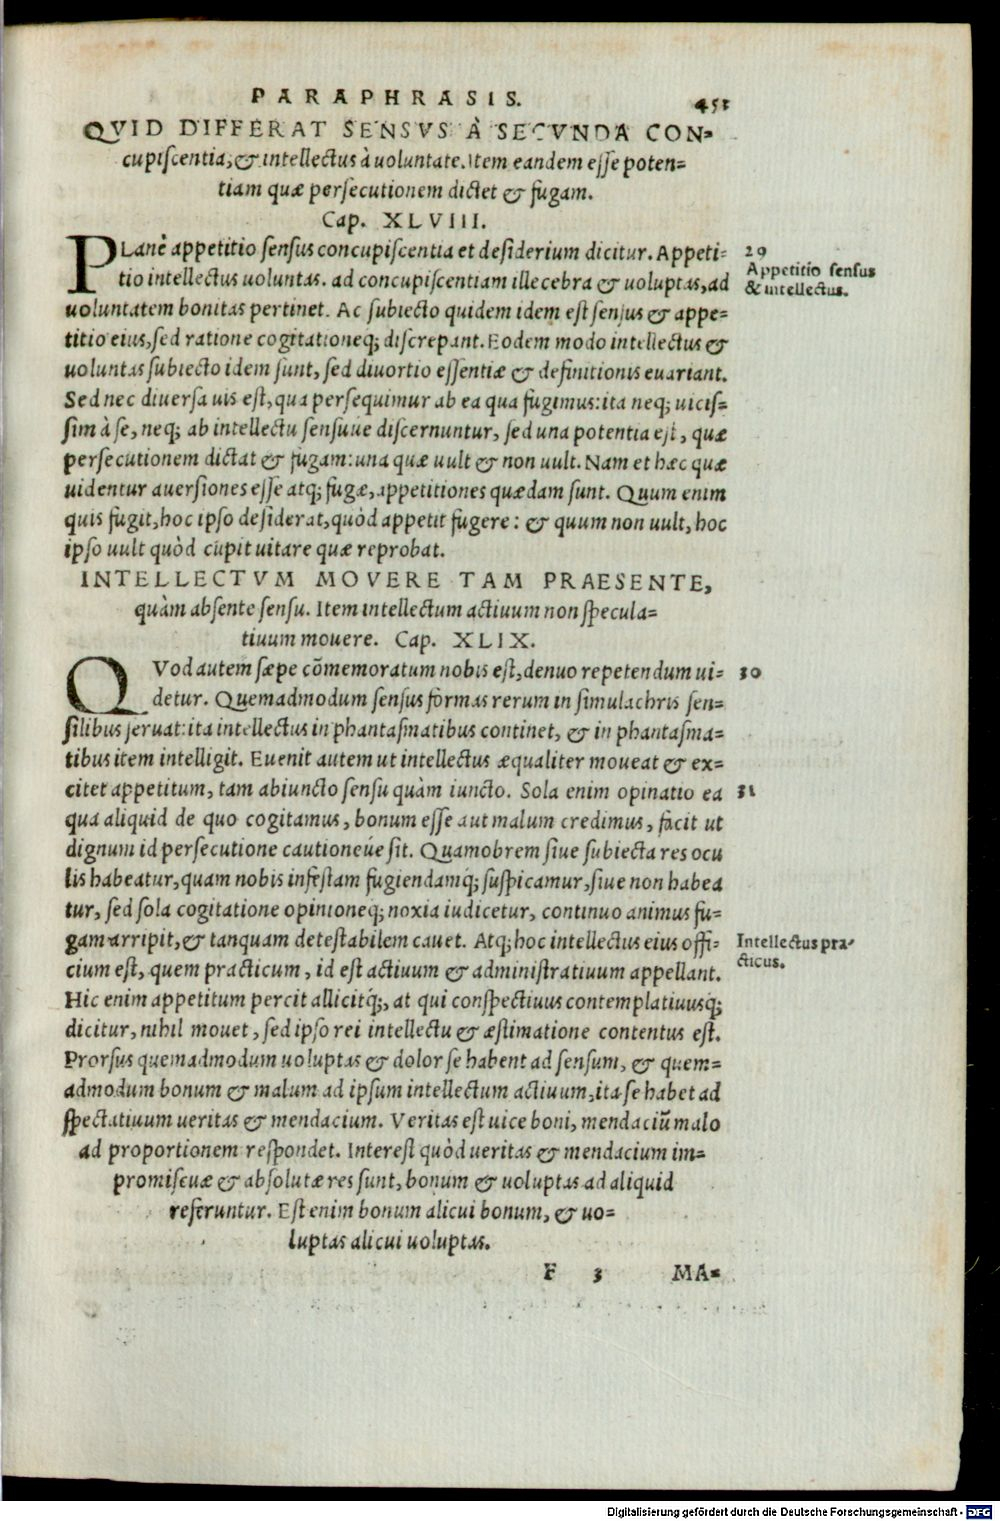 PARAPHRASIS. 451
QVID DIFFERAT SENSVS À SECVNDA CON-
cupiscentia, & intellectus à uoluntate. Item eandem esse poten-
tiam quæ persecutionem dictet & fugam.
Cap. XLVIII.
PLanè appetitio sensus concupiscentia et desiderium dicitur. Appeti-
tio intellectus uoluntas. ad concupiscentiam illecebra & uoluptas, ad
uoluntatem bonitas pertinet. Ac subiecto quidem idem est sensus & appe-
titio eius, sed ratione cogitationeq; discrepant. Eodem modo intellectus &
uoluntas subiecto idem sunt, sed diuortio essentiæ & definitionis euariant.
Sed nec diuersa uis est, qua persequimur ab ea qua fugimus: ita neq; uicis-
sim à se, neq; ab intellectu sensuúe discernuntur, sed una potentia est, quæ
persecutionem dictat & fugam: una quæ uult & non uult. Nam et hæc quæ
uidentur auersiones esse atq; fugæ, appetitiones quædam sunt. Quum enim
quis fugit, hoc ipso desiderat, quòd appetit fugere: & quum non uult, hoc
ipso uult quòd cupit uitare quæ reprobat.
29
Appetitio sensus
& intellectus.
INTELLECTVM MOVERE TAM PRAESENTE,
quàm absente sensu. Item intellectum actiuum non specula-
tiuum mouere. Cap. XLIX.
QVod autem sæpe cõmemoratum nobis est, denuo repetendum ui-
detur. Quemadmodum sensus formas rerum in simulachris sen-
silibus seruat: ita intellectus in phantasmatibus continet, & in phantasma-
tibus item intelligit. Euenit autem ut intellectus æqualiter moueat & ex-
citet appetitum, tam abiuncto sensu quàm iuncto. Sola enim opinatio ea
qua aliquid de quo cogitamus, bonum esse aut malum credimus, facit ut
dignum id persecutione cautioneúe sit. Quamobrem siue subiecta res ocu
lis habeatur, quam nobis infestam fugiendamq́; suspicamur, siue non habea
tur, sed sola cogitatione opinioneq; noxia iudicetur, continuo animus fu-
gam arripit, & tanquam detestabilem cauet. Atq; hoc intellectus eius offi-
cium est, quem practicum, id est actiuum & administratiuum appellant.
Hic enim appetitum percit allicitq́;, at qui conspectiuus contemplatiuusq́;
dicitur, nihil mouet, sed ipso rei intellectu & æstimatione contentus est.
Prorsus quemadmodum uoluptas & dolor se habent ad sensum, & quem-
admodum bonum & malum ad ipsum intellectum actiuum, ita se habet ad
spectatiuum ueritas & mendacium. Veritas est uice boni, mendaciũ malo
ad proportionem respondet. Interest quòd ueritas & mendacium im-
promiscuæ & absolutæ res sunt, bonum & uoluptas ad aliquid
referuntur. Est enim bonum alicui bonum, & uo-
luptas alicui uoluptas.
30
31
Intellectus pra-
cticus.
F 3 MA-
Digitalisierung gefördert durch die Deutsche Forschungsgemeinschaft - DFG